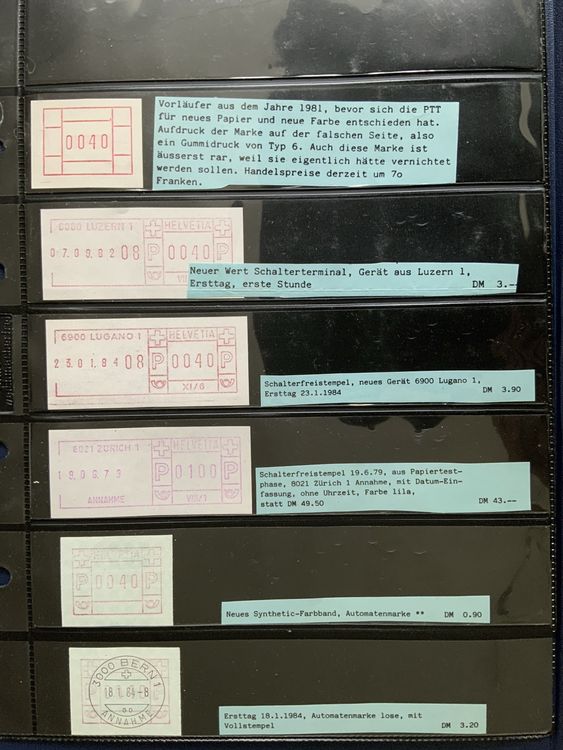 0040
Vorläufer aus dem Jahre 1981, bevor sich die PTT
für neues Papier und neue Farbe entschieden hat.
Aufdruck der Marke auf der falschen Seite, also
ein Gummidruck von Typ 6. Auch diese Marke ist
äusserst rar, weil sie eigentlich hätte vernichtet
werden sollen. Handelspreise derzeit um 7o
Franken.
6000 LUZERN 1 HELVETIA
07.09.82 08 P 0040 P
Neuer Wert Schalterterminal, Gerät aus Luzern 1,
Ersttag, erste Stunde DM 3.--
6900 LUGANO 1 HELVETIA
23.01.84 08 P 0040 P
XI/6
Schalterfreistempel, neues Gerät 6900 Lugano 1,
Ersttag 23.1.1984 DM 3.90
8021 ZÜRICH 1 HELVETIA
19.06.79 P 0100 P
ANNAHME
Schalterfreistempel 19.6.79, aus Papiertest-
phase, 8021 Zürich 1 Annahme, mit Datum-Ein-
fassung, ohne Uhrzeit, Farbe lila,
statt DM 49.50 DM 43.--
HELVETIA
P 0040 P
Neues Synthetic-Farbband, Automatenmarke ** DM 0.90
3000 BERN 1
18.1.84-8
ANNAHME
Ersttag 18.1.1984, Automatenmarke lose, mit
Vollstempel DM 3.20